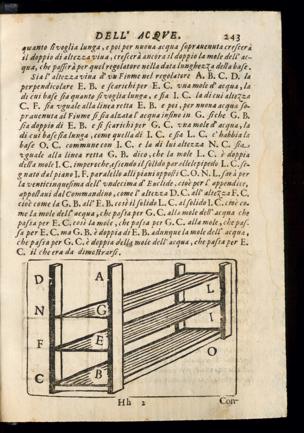 DELL' ACQVE. 243
quanto si voglia lunga, e poi per nuova acqua sopravenuta crescerà
il doppio di altezza viva, crescerà ancora il doppio la mole dell'ac-
qua, che passerà per quel regolatore nella data lunghezza della base.
Sia l' altezza viva d' un Fiume nel regolatore A. B. C. D. la
perpendicolare E. B. e scarichi per E. C. vna mole d' acqua, la
di cui base sia quanto si voglia lunga, e sia I. C. la di cui altezza
C. F. sia vguale alla linea retta E. B. e poi, per nuova acqua so-
pravenuta al Fiume si sia alzata l' acqua insino in G. siche G. B.
sia doppio di E. B. e si scarichi per G. C. vna mole d' acqua, la
di cui base sia lunga, come quella di I. C. e sia L. C. e habbia la
base O. C. commune con I. C. e la di lui altezza N. C. sia
vguale alla linea retta G. B. dico, che la mole L. C. è doppia
della mole I. C. imperoche, essendo il solido parellelepipedo L. C. se-
gnato dal piano I. F. paralello alli piani opposti C. O. N. L. sarà per
la venticinquesima dell' undecimo d' Euclide, cioè per l' appendice,
appostavi dal Commandino, come l' altezza D. C. all' altezza F. C.
cioè come la G. B. all' E. B. così il solido L. C. al solido I. C. cioè co-
me la mole dell' acqua, che passa per G. C. alla mole dell' acqua che
passa per E. C. così la mole, che passa per G. C. alla mole, che pas-
sa per E. C. ma G. B. è doppia di E. B. adunque la mole dell' acqua,
che passa per G. C. è doppia della mole dell' acqua, che passa per E.
C. il che era da dimostrarsi.
D A
L
N G
I
F E
O
C B
Hh 2 Con-